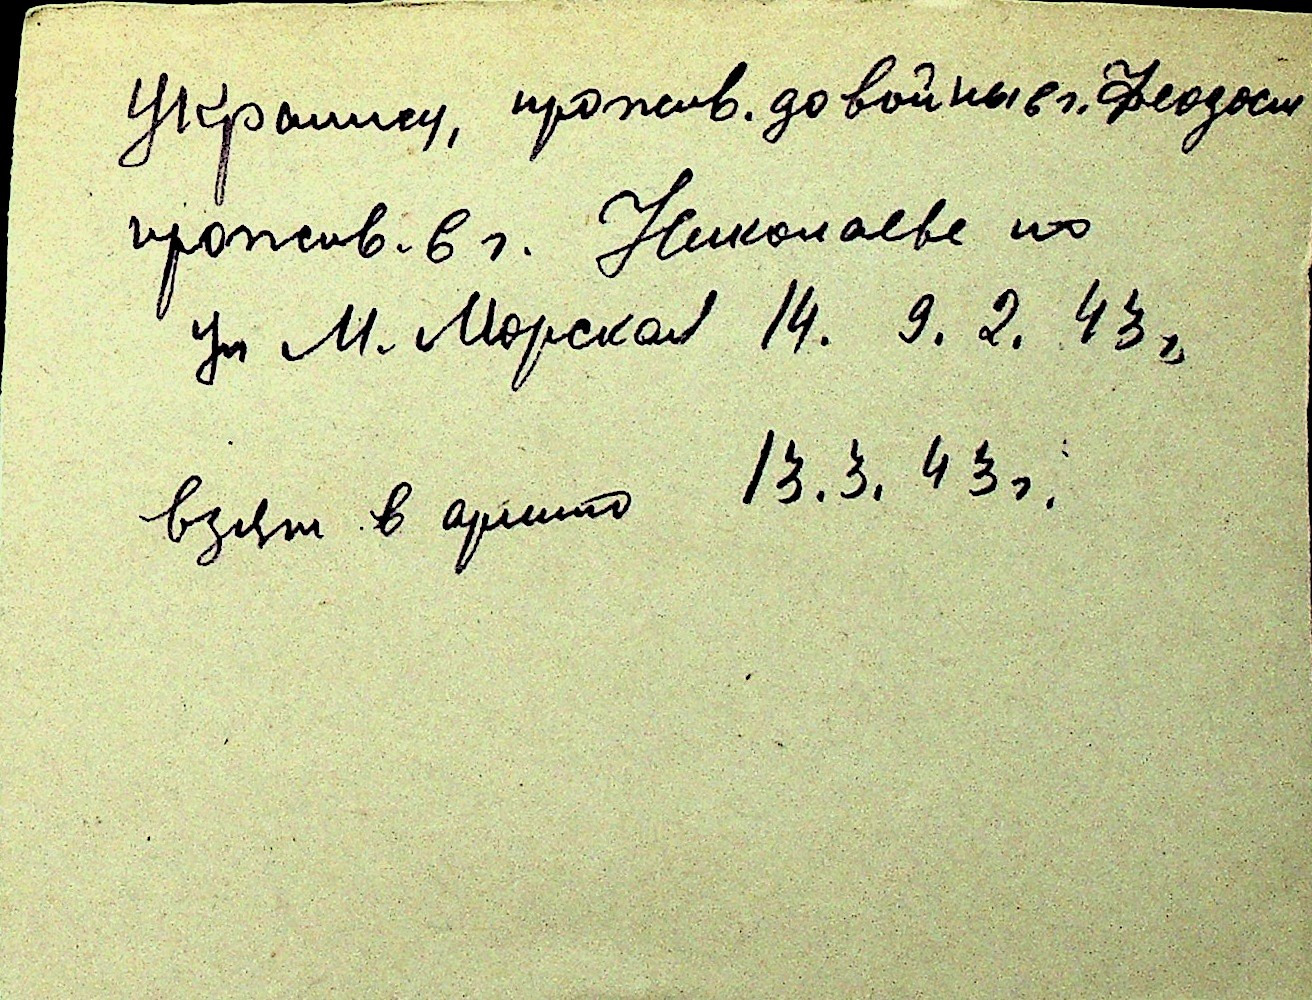 Украинец, прожив. до войны в г. Феодосии
прожив. в г. Николаеве по
ул М. Морская 14. 9. 2. 43 г.
взят в армию 13. 3. 43 г.